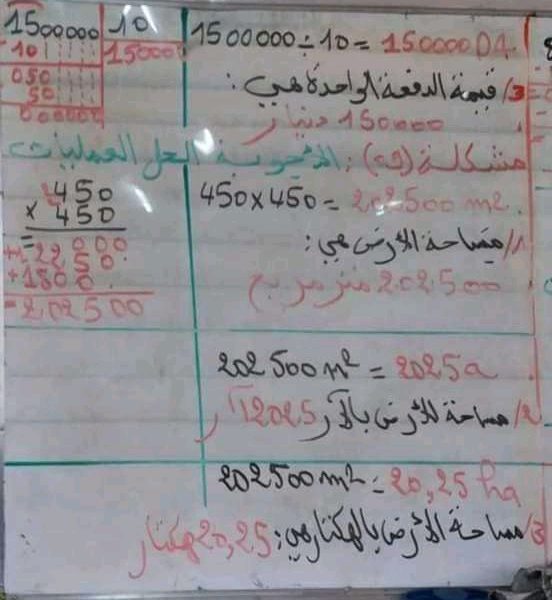 1500000 | 10
1500000÷10= 150000 DA.
10 | 15000
050
50
000000
3/ قيمة الدفعة الواحدة هي:
150000 دينار
مشكلة (جـ): الأجوبة الحل العمليات
450
× 450
=
000
+ 22 50
+1800
=2,02500
450×450= 202500 m2.
1/ مساحة الأرض هي:
202500 متر مربع
202500 m² = 2025a
2/ مساحة الأرض بالآر 2025 آر
202500m² = 20,25 ha
3/ مساحة الأرض بالهكتار هي: 20,25 هكتار